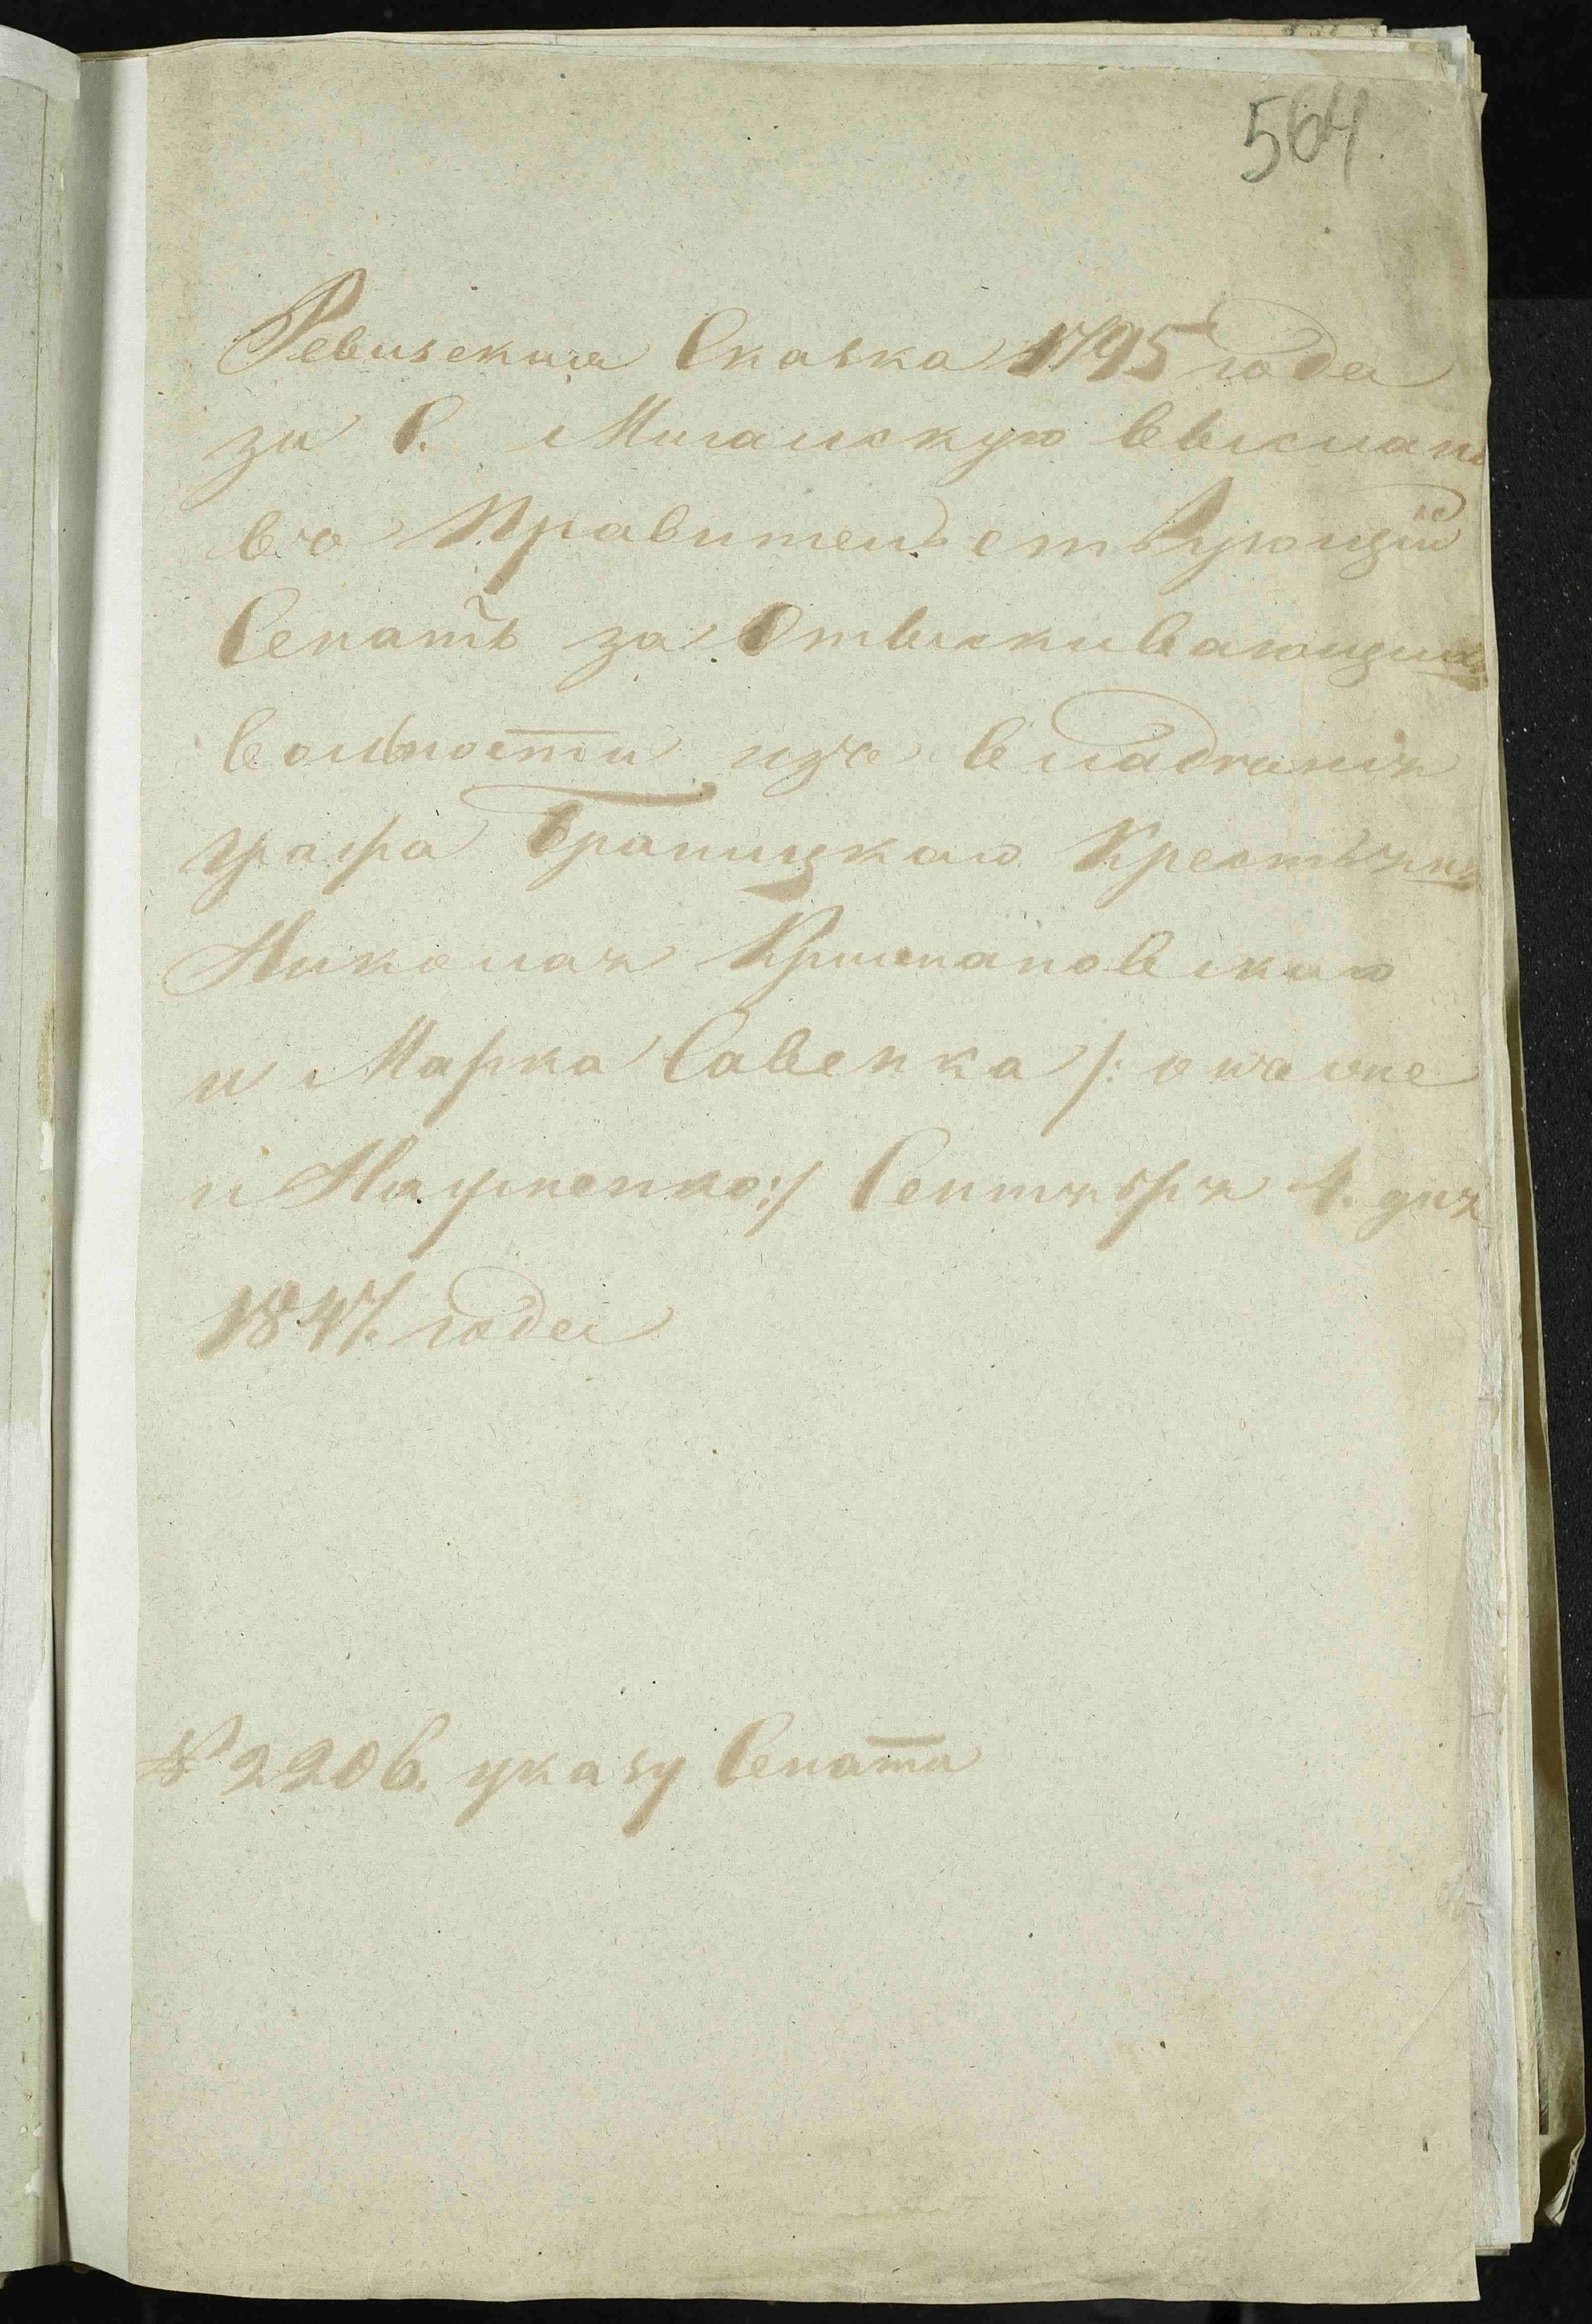 564.
Ревизская Сказка 1795 года
за С. выслана
въ Правительствующій
Сенатъ за Отыскивающихъ
вольности изъ владѣнія
графа Браницкаго Крестьянъ
Николая
и Марка Савенка /: онъ же
и Науменко:/ Сентября 4. дня
1847. года
№ 2206. указу Сената